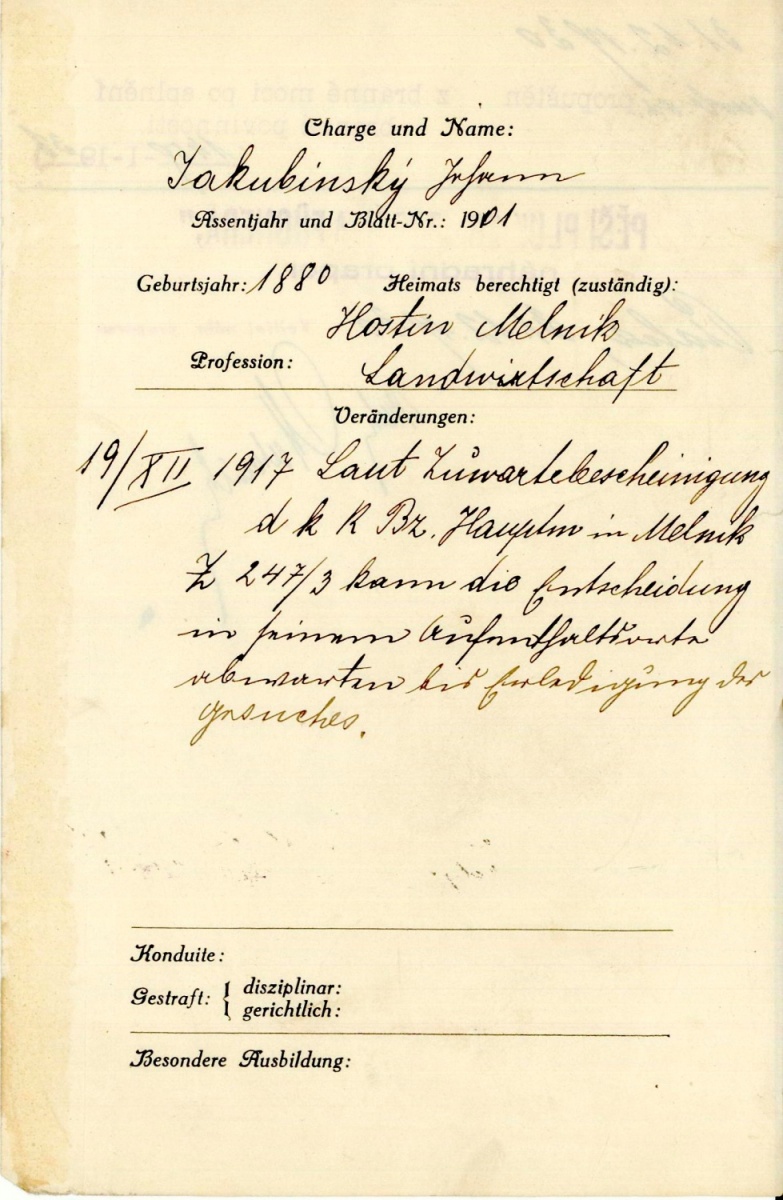 Charge und Name:
Jakubinský Johann
Assentjahr und Blatt-Nr.: 1901
Geburtsjahr: 1880 Heimats berechtigt (zuständig):
Hostin Melnik
Profession: Landwirtschaft
Veränderungen:
19/XII 1917 Laut Zuwartebescheinigung
d k k Bz. Hauptm in Melnik
Z 247/3 kann die Entscheidung
in seinem Aufenthaltsorte
abwarten bis Erledigung des
Gesuches.
Konduite:
Gestraft: { disziplinar:
gerichtlich:
Besondere Ausbildung: